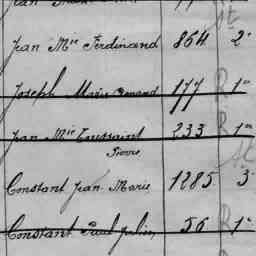 Jean Mie Ferdinand 864 2e
Joseph Marie 177 R 1e
Jean Mie Toussaint 233 R 1e
Pierre
Constant Jean Marie 1285 3e
Constant Paul Julien 56 R 1e